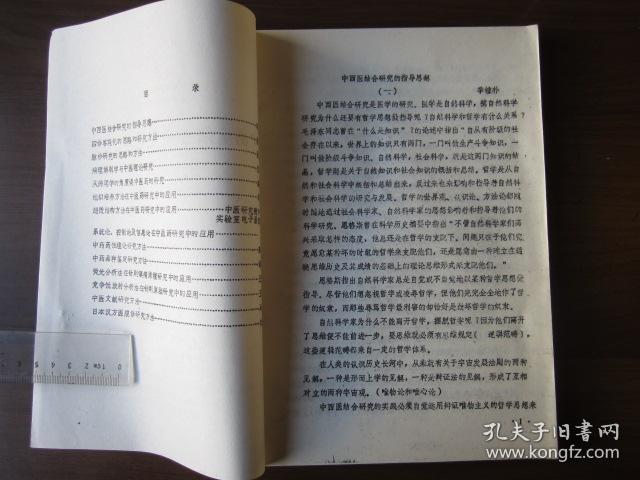 目 录
中西医结合研究的指导思想
四诊客观化的思路和研究方法
脉诊研究的思路和方法
病理解剖学与中医理论研究
从病理学的角度谈中医药的研究
组织培养方法在中医药研究中的应用
超微结构方法在中医药研究中的应用
中医研究
实验室电子
系统论、控制论及信息论在中医药研究中的应用
中药药性理论研究方法
中药品种鉴定研究方法
中医文献研究方法
日本汉方医座谈研究方法
中西医结合研究的指导思想
(一)
李德朴
中西医结合研究是医学的研究，医学是自然科学，搞自然科学
研究为什么还要有哲学思想做指导呢？自然科学和哲学有什么关系？
毛泽东同志曾在“什么是知识”？的论述中指出“自从有阶级的社会
存在以来，世界上的知识只有两门，一门叫做生产斗争知识，一
门叫做阶级斗争知识。自然科学，社会科学，就是这两门知识的结
晶，哲学则是关于自然知识和社会知识的概括和总结。哲学是从自
然和社会科学中概括和总结出来，反过来也来影响和指导着自然科
学和社会科学的研究与发展。哲学的世界观、认识论、方法论都随
时随地通过社会科学家、自然科学家的思想影响着和指导着他们的
科学研究。恩格斯曾在科学历史摘要中指出“不管自然科学家们高
兴采取怎样的态度，他总还是在哲学的支配下。问题只在于他们究
竟愿意某种坏的时髦的哲学来支配他们，还是愿意由一种建立在通
晓思维历史及其成绩的基础上的理论思维形式来支配他们。”
恩格斯指出自然科学家总是自觉或不自觉地以某种哲学思想做
指导。尽管他们想忽视哲学或凌辱哲学，但他们完完全全地作了哲
学的奴隶，而那些辱骂哲学最利害的却恰好是最坏哲学的奴隶。
自然科学家为什么不能离开哲学，摆脱哲学呢？因为他们离开
了思维便不能前进一步，要思维就必须有思维规定（逻辑范畴），
这些逻辑范畴都来自一定的哲学体系。
在人类的认识历史长河中，从来就有关于宇宙发展法则的两种
见解，一种是形而上学的见解，一种是辩证法的见解，形成了互相
对立的两种宇宙观。（唯物论和唯心论）
中西医结合研究的实践必须自觉运用辩证唯物主义的哲学思想来
1
0 1cm 2
孔夫子旧书网
www.kongfz.com